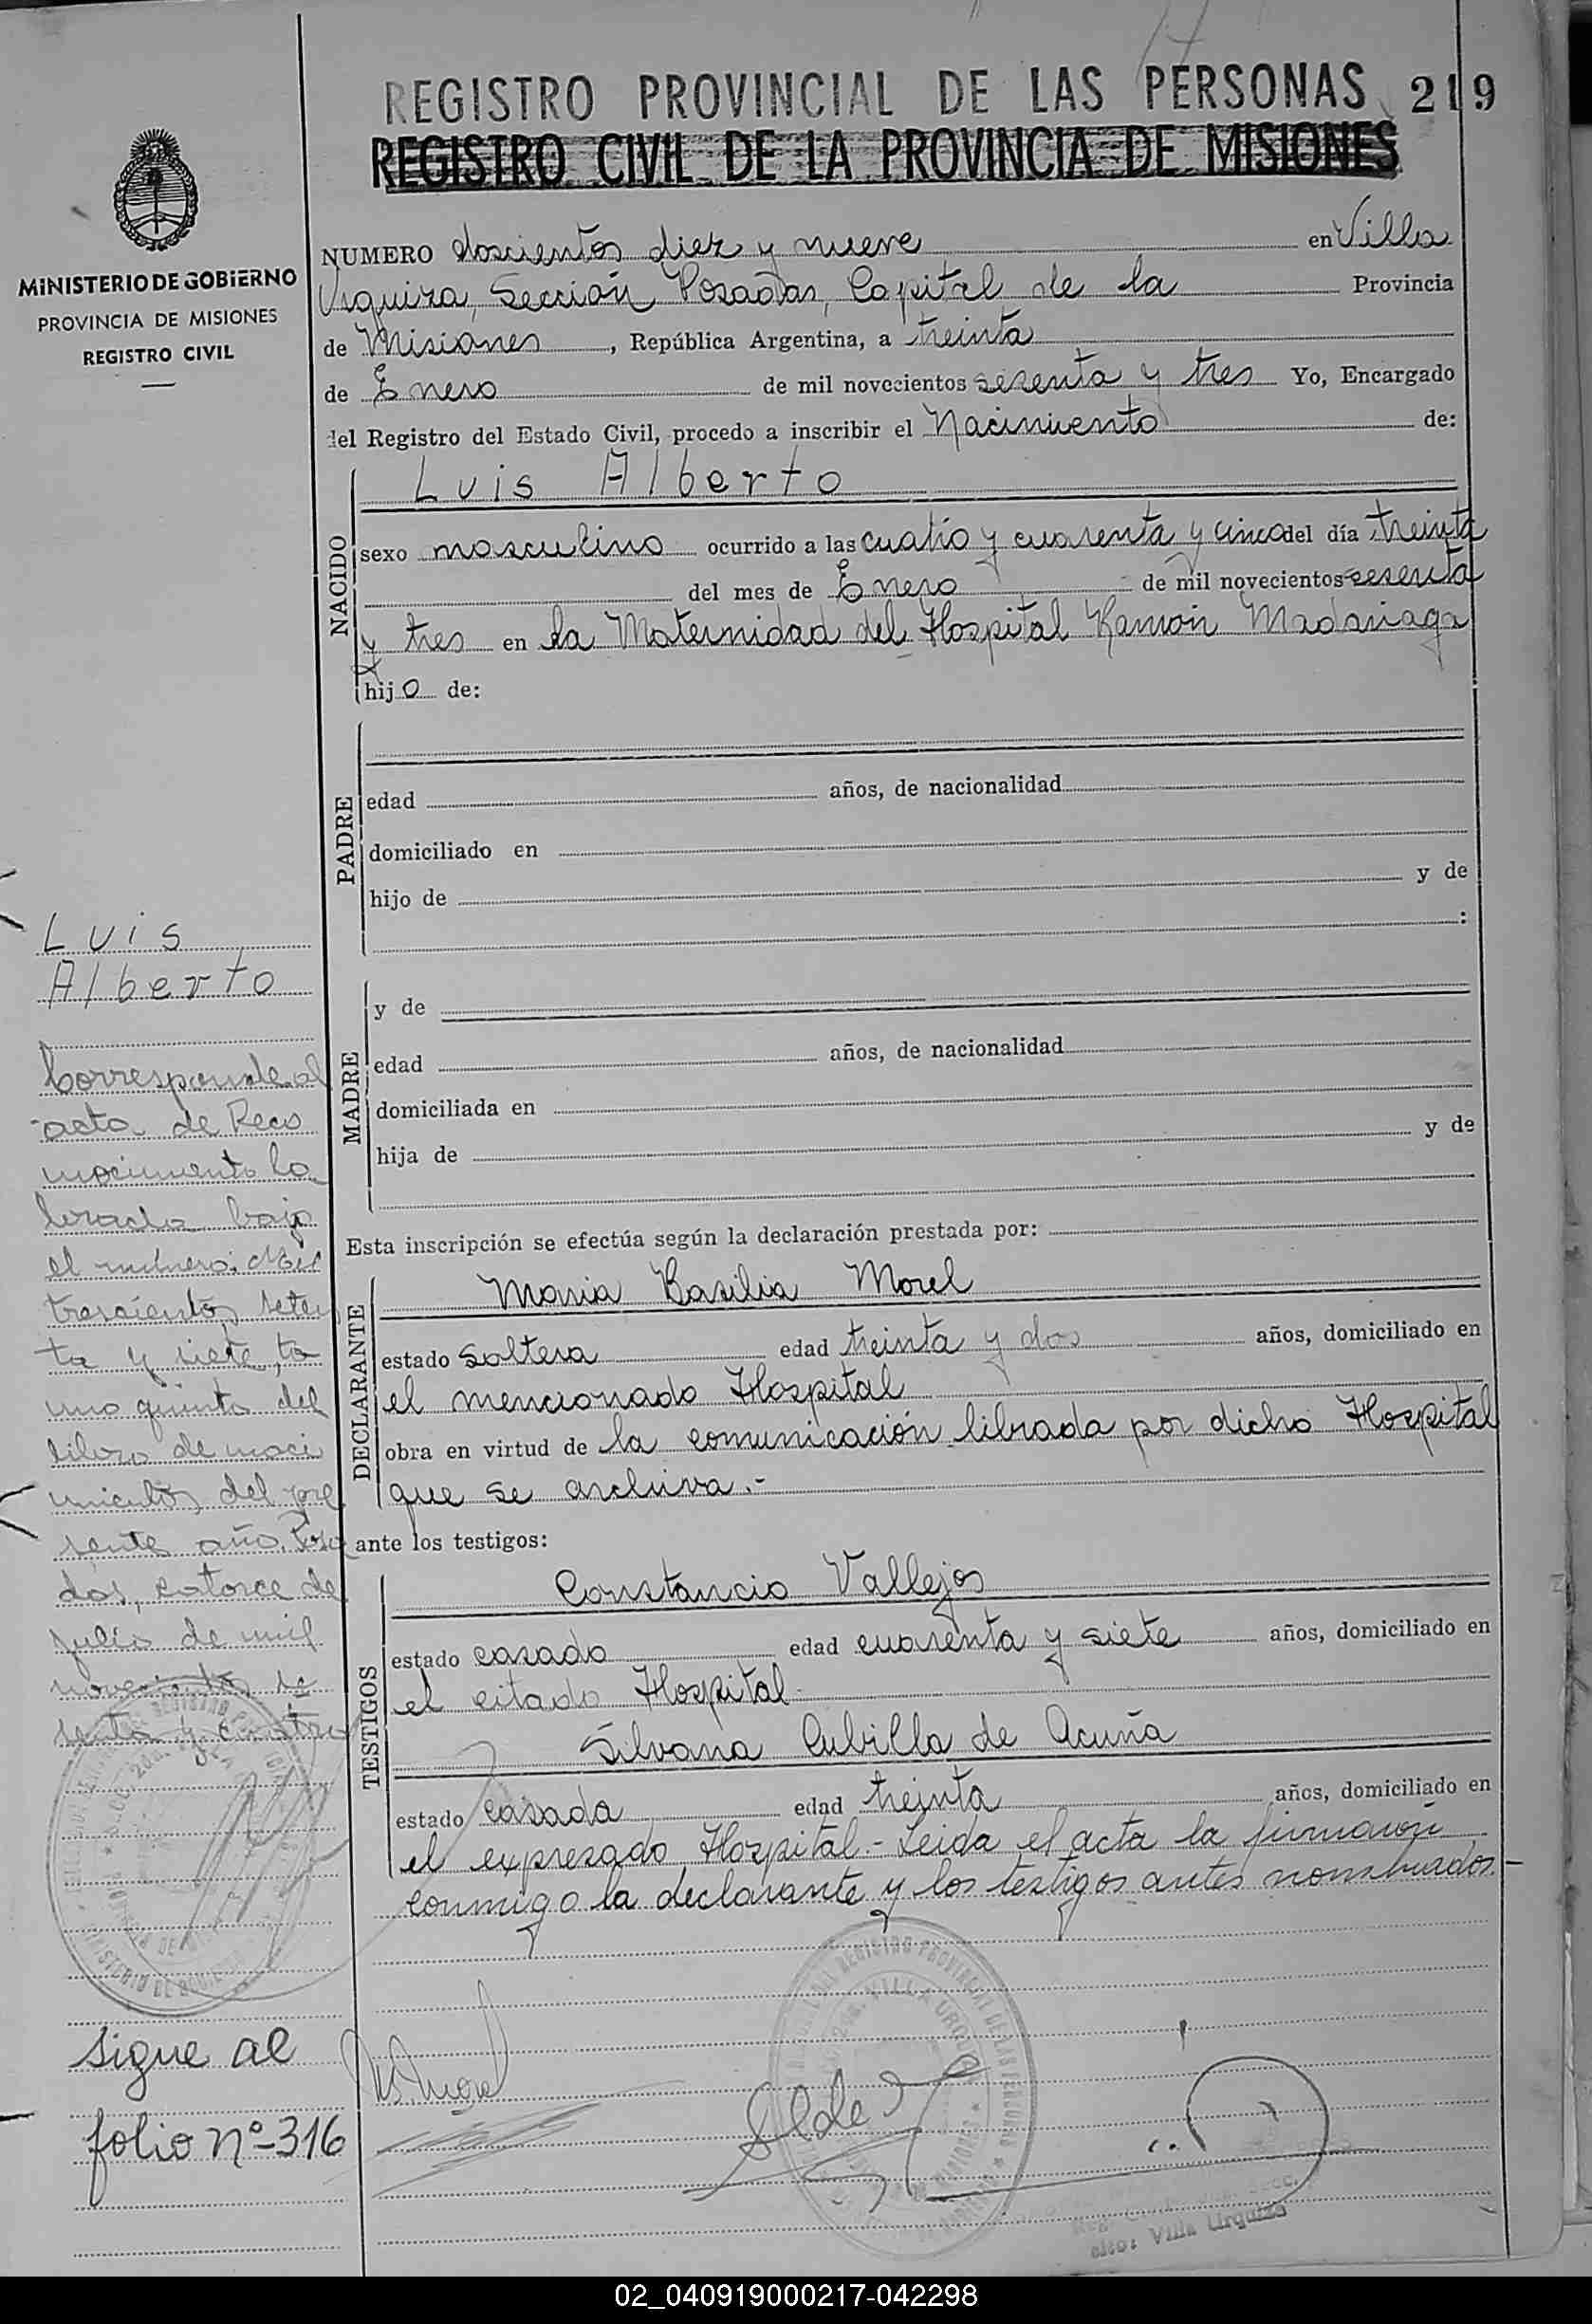 REGISTRO PROVINCIAL DE LAS PERSONAS 219
REGISTRO CIVIL DE LA PROVINCIA DE MISIONES
MINISTERIO DE GOBIERNO
PROVINCIA DE MISIONES
REGISTRO CIVIL
NUMERO doscientos diez y nueve en Villa
Urquiza, Sección Posadas, Capital de la Provincia
de Misiones, República Argentina, a treinta
de Enero de mil novecientos sesenta y tres Yo, Encargado
del Registro del Estado Civil, procedo a inscribir el Nacimiento de:
NACIDO
Luis Alberto
sexo masculino ocurrido a las cuatro y cuarenta y cinco del día treinta
del mes de Enero de mil novecientos sesenta
y tres en la Maternidad del Hospital Ramón Madariaga
hijo de:
PADRE
edad años, de nacionalidad
domiciliado en
hijo de y de
:
MADRE
y de
edad años, de nacionalidad
domiciliada en
hija de y de
Esta inscripción se efectúa según la declaración prestada por:
DECLARANTE
Maria Basilia Morel
estado soltera edad treinta y dos años, domiciliado en
el mencionado Hospital
obra en virtud de la comunicación librada por dicho Hospital
que se archiva.-
ante los testigos:
TESTIGOS
Constancio Vallejos
estado casado edad cuarenta y siete años, domiciliado en
el citado Hospital
Silvana Cubilla de Acuña
estado casada edad treinta años, domiciliado en
el expresado Hospital.- Leida el acta la firmaron
conmigo la declarante y los testigos antes nombrados.-
Luis
Alberto
Corresponde al
acta de Reco
nocimiento la
brada bajo
el número: Mil
trescientos seten
ta y siete, to
mo quinto del
libro de naci
mientos del pre
sente año. Posa
das, catorce de
julio de mil
novecientos se
senta y cuatro
sigue al
folio nº-316
Villa Urquiza
02_040919000217-042298